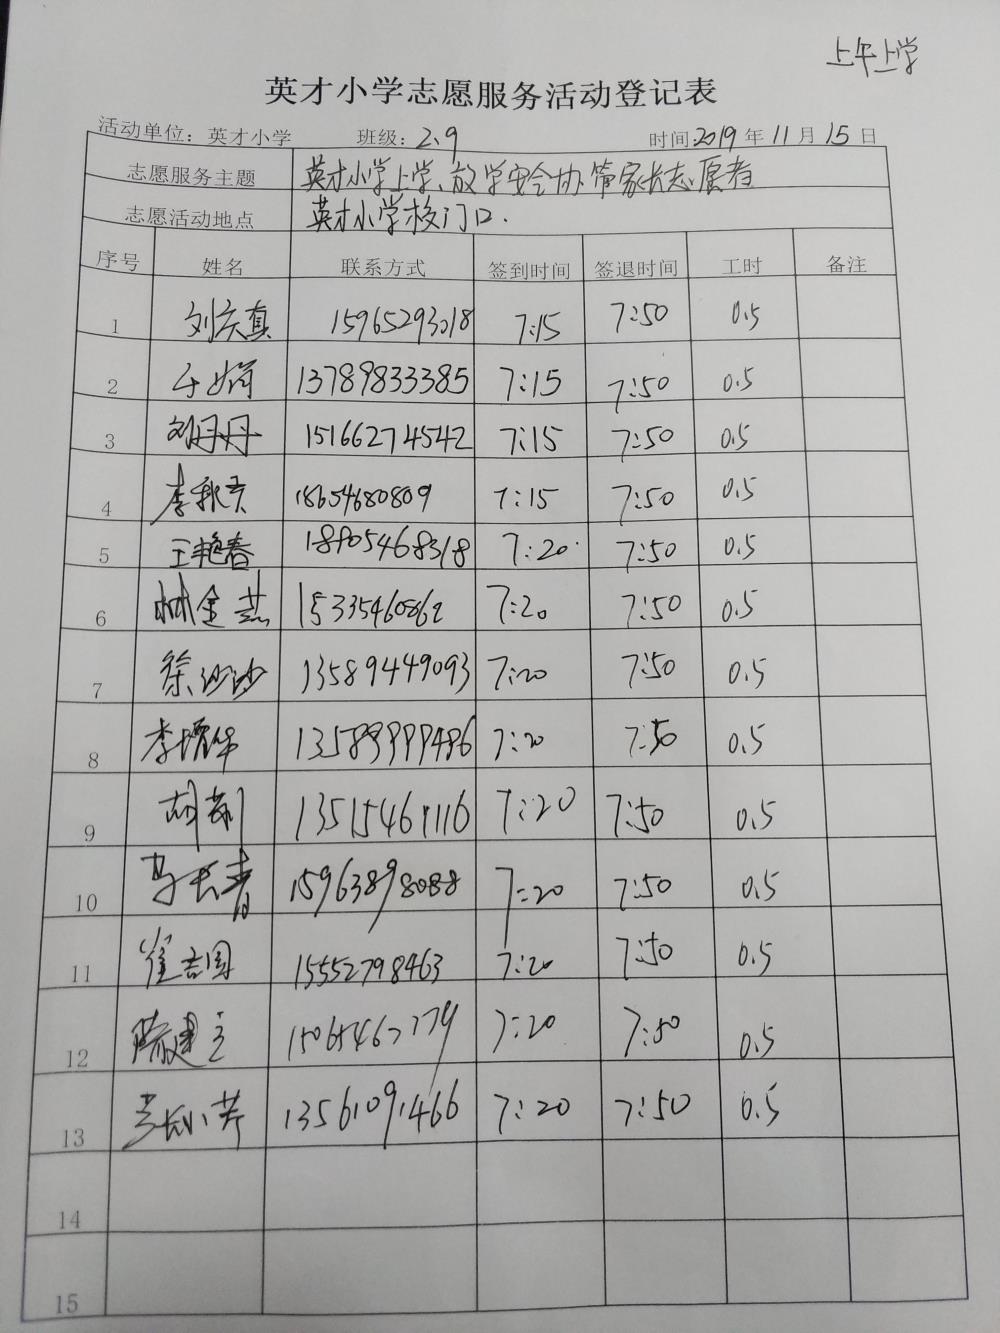 上午上学
英才小学志愿服务活动登记表
活动单位：英才小学 班级：2.9 时间：2019年11月15日
志愿服务主题 英才小学上学、放学安全协管家长志愿者
志愿活动地点 英才小学校门口.
序号 姓名 联系方式 签到时间 签退时间 工时 备注
1 刘庆真 15965293018 7:15 7:50 0.5
2 于娟 13789833385 7:15 7:50 0.5
3 刘丹丹 15166274542 7:15 7:50 0.5
4 李秋 18654680809 7:15 7:50 0.5
5 王艳春 18905468318 7:20 7:50 0.5
6 林金燕 15335460862 7:20 7:50 0.5
7 徐沙沙 13589449093 7:20 7:50 0.5
8 李增华 13589999486 7:20 7:50 0.5
9 胡莉 13515461116 7:20 7:50 0.5
10 马长青 15963898088 7:20 7:50 0.5
11 崔志国 15552798463 7:20 7:50 0.5
12 滕建立 7:20 7:50 0.5
13 小芹 13561091466 7:20 7:50 0.5
14
15